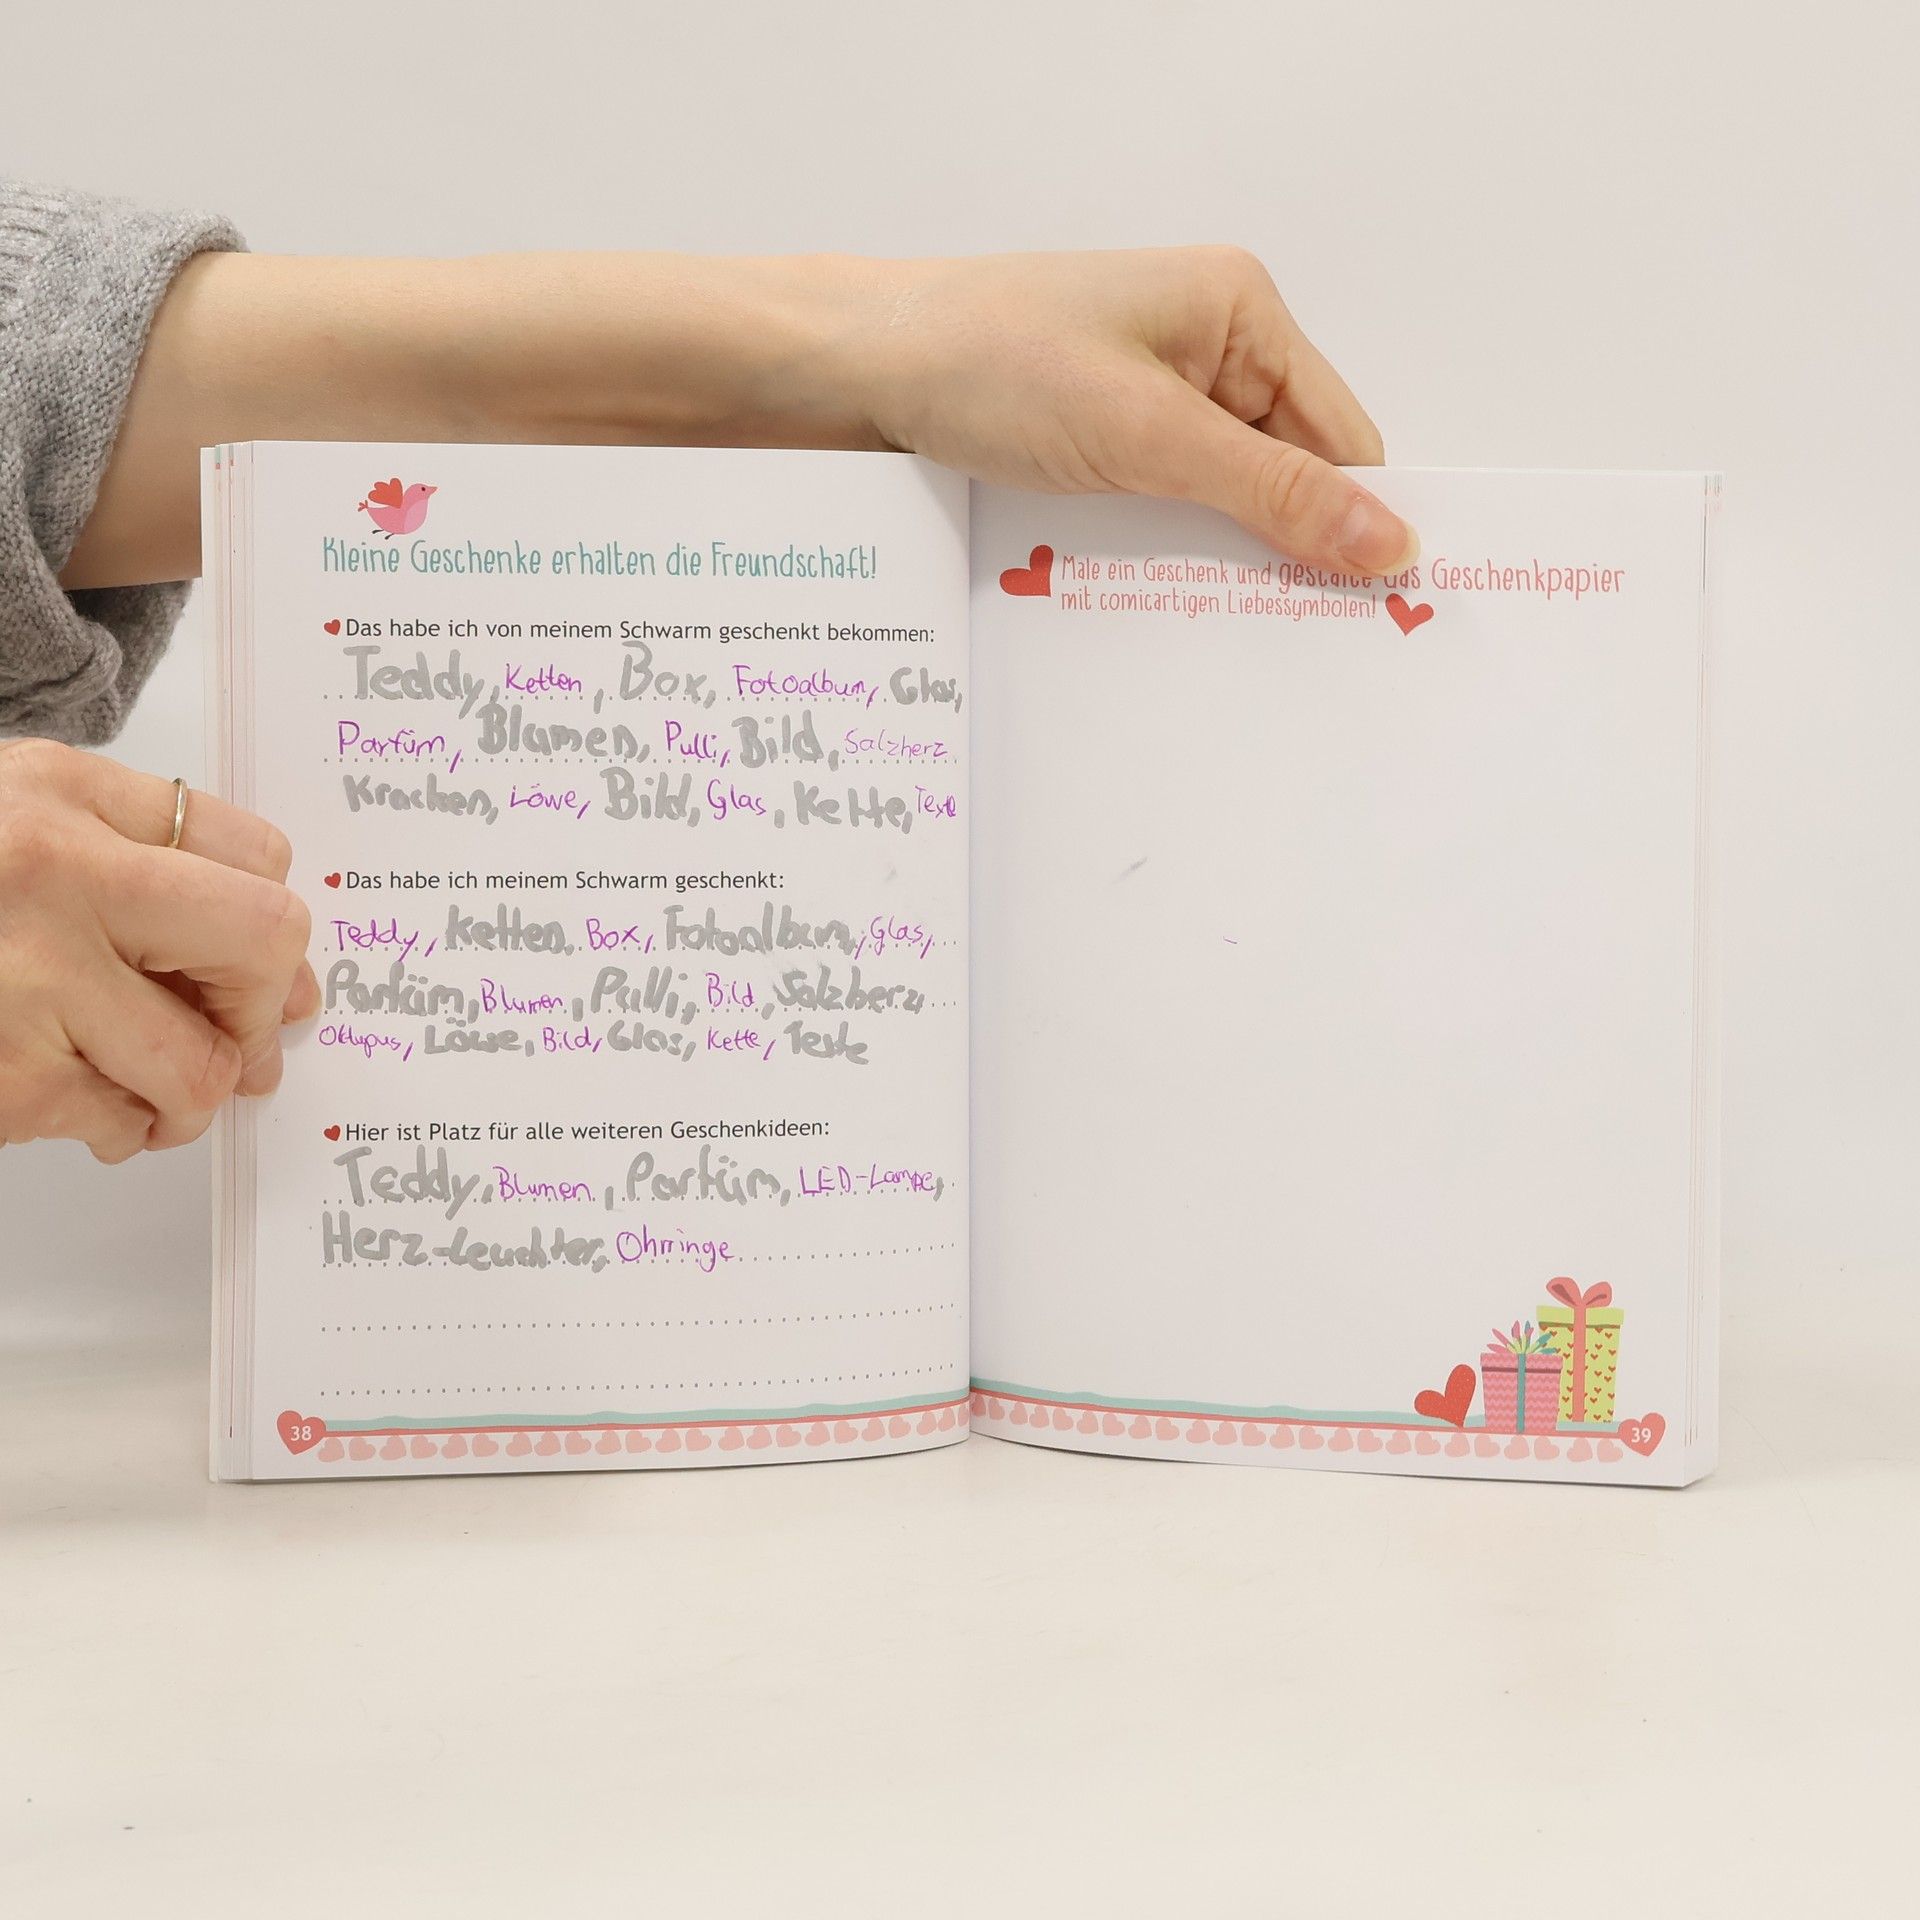 Kleine Geschenke erhalten die Freundschaft!
Das habe ich von meinem Schwarm geschenkt bekommen:
Teddy, Ketten, Box, Fotoalbum, Glas,
Parfüm, Blumen, Pulli, Bild, Salzherz
Kracken, Löwe, Bild, Glas, Kette, Texte
Das habe ich meinem Schwarm geschenkt:
Teddy, Ketten, Box, Fotoalbum, Glas,
Parfüm, Blumen, Pulli, Bild, Salzherz
Oktupus, Löwe, Bild, Glas, Kette, Texte
Hier ist Platz für alle weiteren Geschenkideen:
Teddy, Blumen, Parfüm, LED-Lampe,
Herz-leuchter, Ohrringe
38
Male ein Geschenk und gestalte das Geschenkpapier
mit comicartigen Liebessymbolen!
39